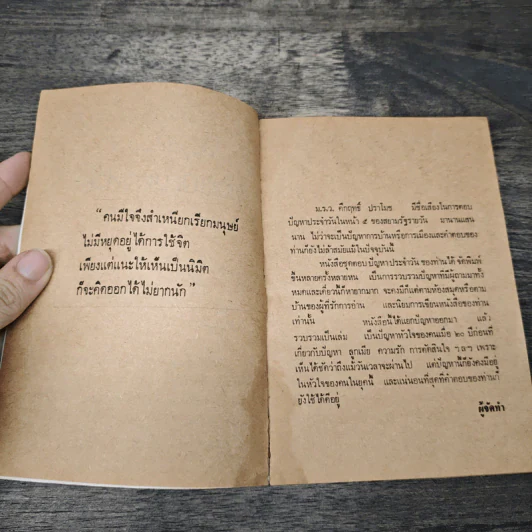 “คนมีใจจึงสำเหนียกเรียกมนุษย์
ไม่มีหยุดอยู่ได้การใช้จิต
เพียงแต่แนะให้เห็นเป็นนิมิต
ก็จะคิดออกได้ไม่ยากนัก”
ม.ร.ว. คึกฤทธิ์ ปราโมช มีชื่อเสียงในการตอบ
ปัญหาประจำวันในหน้า ๕ ของสยามรัฐรายวัน มานานแสน
นาน ไม่ว่าจะเป็นปัญหาการบ้านหรือการเมืองและคำตอบของ
ท่านก็ยังไม่ล้าสมัยแม้ในปัจจุบันนี้
หนังสือชุดตอบปัญหาประจำวัน ของท่านได้ จัดพิมพ์
ขึ้นหลายครั้งหลายหน เป็นการรวบรวมปัญหาที่มีผู้ถามมาทั้ง
หมดและเดี๋ยวนี้ก็หายากมาก จะคงมีก็แต่ตามห้องสมุดหรือตาม
บ้านของผู้ที่รักการอ่าน และนิยมการเขียนหนังสือของท่าน
เท่านั้น หนังสือนี้ได้แยกปัญหาออกมา แล้ว
รวบรวมเป็นเล่ม เป็นปัญหาหัวใจของคนเมื่อ ๒๐ ปีก่อนที่
เกี่ยวกับปัญหา ลูกเมีย ความรัก การตัดสินใจ ฯลฯ เพราะ
เห็นได้ชัดว่าถึงแม้วันเวลาจะผ่านไป แต่ปัญหานี้ก็ยังคงมีอยู่
ในหัวใจของคนในยุคนี้ และแน่นอนที่สุดที่คำตอบของท่านก็
ยังใช้ได้ดีอยู่
ผู้จัดทำ